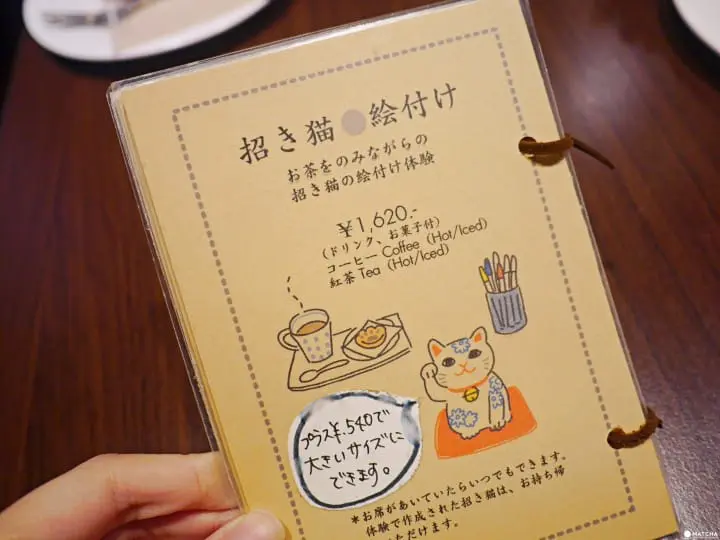 招き猫●絵付け
お茶をのみながらの
招き猫の絵付け体験
￥1,620.-
（ドリンク、お菓子付）
コーヒー Coffee（Hot/Iced）
紅茶 Tea（Hot/Iced）
プラス¥.540で
大きいサイズに
できます。
＊お席があいていたらいつでもできます。
体験で作成された招き猫は、お持ち帰
いただけます。
MATCHA